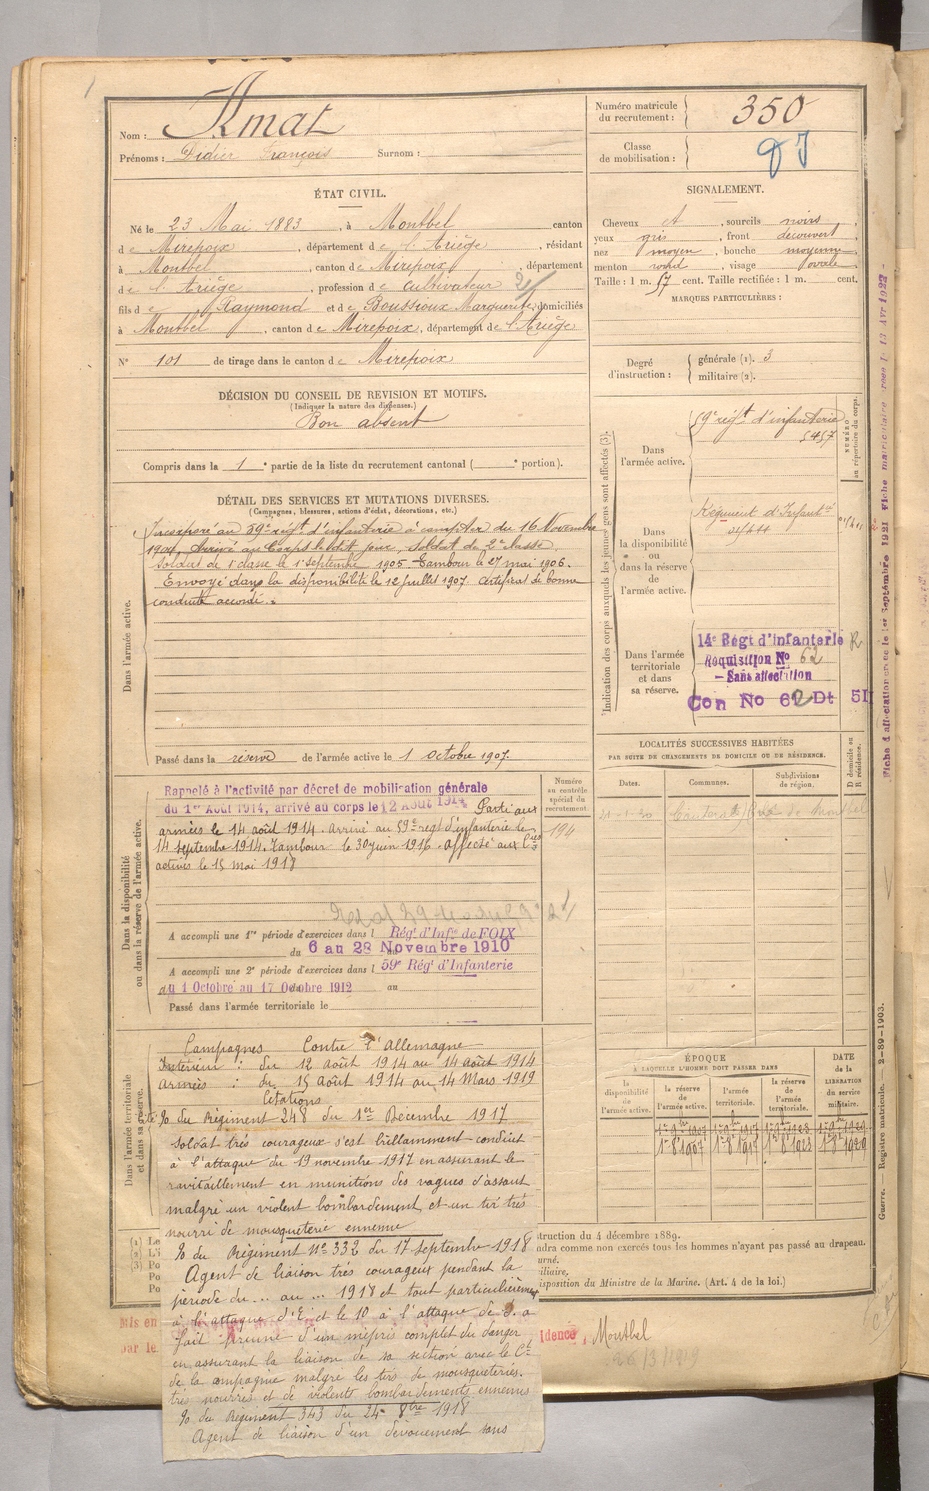 Nom : Amat
Prénoms : Didier François Surnom :
Numéro matricule du recrutement : 350
Classe de mobilisation :
ÉTAT CIVIL.
Né le 23 Mai 1883, à Montbel canton
de Mirepoix, département de l'Ariège, résidant
à Montbel, canton de Mirepoix, département
de l'Ariège, profession de cultivateur
fils de Raymond et de Boussioux Marguerite, domiciliés
à Montbel, canton de Mirepoix, département de l'Ariège
N° 101 de tirage dans le canton de Mirepoix
SIGNALEMENT.
Cheveux , sourcils noirs
yeux gris, front découvert
nez moyen, bouche moyenne
menton rond, visage ovale
Taille : 1 m. 57 cent. Taille rectifiée : 1 m. cent.
MARQUES PARTICULIÈRES :
Degré d'instruction : générale (1). 3
militaire (2).
DÉCISION DU CONSEIL DE REVISION ET MOTIFS.
(Indiquer la nature des dispenses.)
Bon absent
Compris dans la 1e partie de la liste du recrutement cantonal ( e portion).
DÉTAIL DES SERVICES ET MUTATIONS DIVERSES.
(Campagnes, blessures, actions d'éclat, décorations, etc.)
Dans l'armée active.
Incorporé au 59e régt d'infanterie à compter du 16 Novembre
1904. Arrivé au Corps le dit jour, soldat de 2e classe.
Soldat de 1e classe le 1er septembre 1905. Tambour le 27 mai 1906.
Envoyé dans la disponibilité le 12 juillet 1907. Certificat de bonne
conduite accordé.
Passé dans la réserve de l'armée active le 1 octobre 1907.
Indication des corps auxquels les jeunes gens sont affectés (3).
NUMÉRO au répertoire du corps.
Dans l'armée active.
59e régt d'infanterie
5457
Dans la disponibilité ou dans la réserve de l'armée active.
Régiment d'Infanterie
Dans l'armée territoriale et dans sa réserve.
14e Régt d'infanterie
Réquisition No 62
— Sans affectation
Con No 62 Dt 5II
LOCALITÉS SUCCESSIVES HABITÉES
PAR SUITE DE CHANGEMENTS DE DOMICILE OU DE RÉSIDENCE.
Dates. Communes. Subdivisions de région. D domicile ou R résidence.
Dans la disponibilité ou dans la réserve de l'armée active.
Numéro au contrôle spécial du recrutement
194
Rappelé à l'activité par décret de mobilisation générale
du 1er Août 1914, arrivé au corps le 12 Août 1914 Parti aux
armées le 14 août 1914. Arrivé au 59e régt d'infanterie le
14 septembre 1914. Tambour le 30 juin 1916. Affecté aux Cies
actives le 15 mai 1918
A accompli une 1re période d'exercices dans l Régt d'Infie de FOIX
du 6 au 28 Novembre 1910
A accompli une 2e période d'exercices dans l 59e Régt d'Infanterie
du 1 Octobre au 17 Octobre 1912 au
Passé dans l'armée territoriale le
Dans l'armée territoriale et dans sa réserve.
Campagnes Contre l'Allemagne
Intérieur : du 12 août 1914 au 14 août 1914
Armées : du 15 août 1914 au 14 Mars 1919
Citations
Cité % du Régiment 248 du 1er Décembre 1917
Soldat très courageux s'est brillamment conduit
à l'attaque du 19 novembre 1917 en assurant le
ravitaillement en munitions des vagues d'assaut
malgré un violent bombardement et un tir très
nourri de mousqueterie ennemie
% du Régiment No 332 du 17 septembre 1918
Agent de liaison très courageux pendant la
période du ... au ... 1918 et tout particulièrement
à l'attaque d'E. et le 10 à l'attaque de S. a
fait preuve d'un mépris complet du danger
en assurant la liaison de sa section avec le Ct
de la compagnie malgré les tirs de mousqueteries
très nourries et de violents bombardements ennemis
% du Régiment 343 du 24 8bre 1918
Agent de liaison d'un dévouement sans
ÉPOQUE
A LAQUELLE L'HOMME DOIT PASSER DANS
la disponibilité de l'armée active. la réserve de l'armée active. l'armée territoriale. la réserve de l'armée territoriale.
DATE de la LIBÉRATION du service militaire.
struction du 4 décembre 1889.
ndra comme non exercés tous les hommes n'ayant pas passé au drapeau.
urné.
iliaire,
isposition du Ministre de la Marine. (Art. 4 de la loi.)
Mis en
par le
idence, Montbel
26/3/1919
Guerre. — Registre matricule. 2-89-1903.